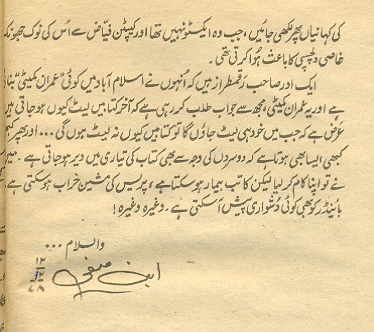 کی کہانیاں پھر لکھی جائیں، جب وہ ایکسٹو نہیں تھا اور کیپٹن فیاض سے اُس کی نوک جھونک
خاصی دلچسپی کا باعث ہوا کرتی تھی۔
ایک اور صاحب رقمطراز ہیں کہ انہوں نے اسلام آباد میں کوئی "عمران کمیٹی" بنا
ہے اور یہ عمران کمیٹی، مجھ سے جواب طلب کر رہی ہے کہ آخر کتابیں لیٹ کیوں ہو جاتی ہیں
عرض ہے کہ جب میں خود ہی لیٹ جاؤں گا تو کتابیں کیوں نہ لیٹ ہوں گی ... اور پھر کبھی
کبھی ایسا بھی ہوتا ہے کہ دوسروں کی وجہ سے بھی کتاب کی تیاری میں دیر ہو جاتی ہے۔ میں
نے تو اپنا کام کر لیا لیکن کاتب بیمار ہو سکتا ہے، پریس کی مشین خراب ہو سکتی ہے
بائینڈر کو بھی کوئی دشواری پیش آ سکتی ہے۔ وغیرہ وغیرہ!
والسلام ...
ابن صفی
۱۲
۱۲
۶۸